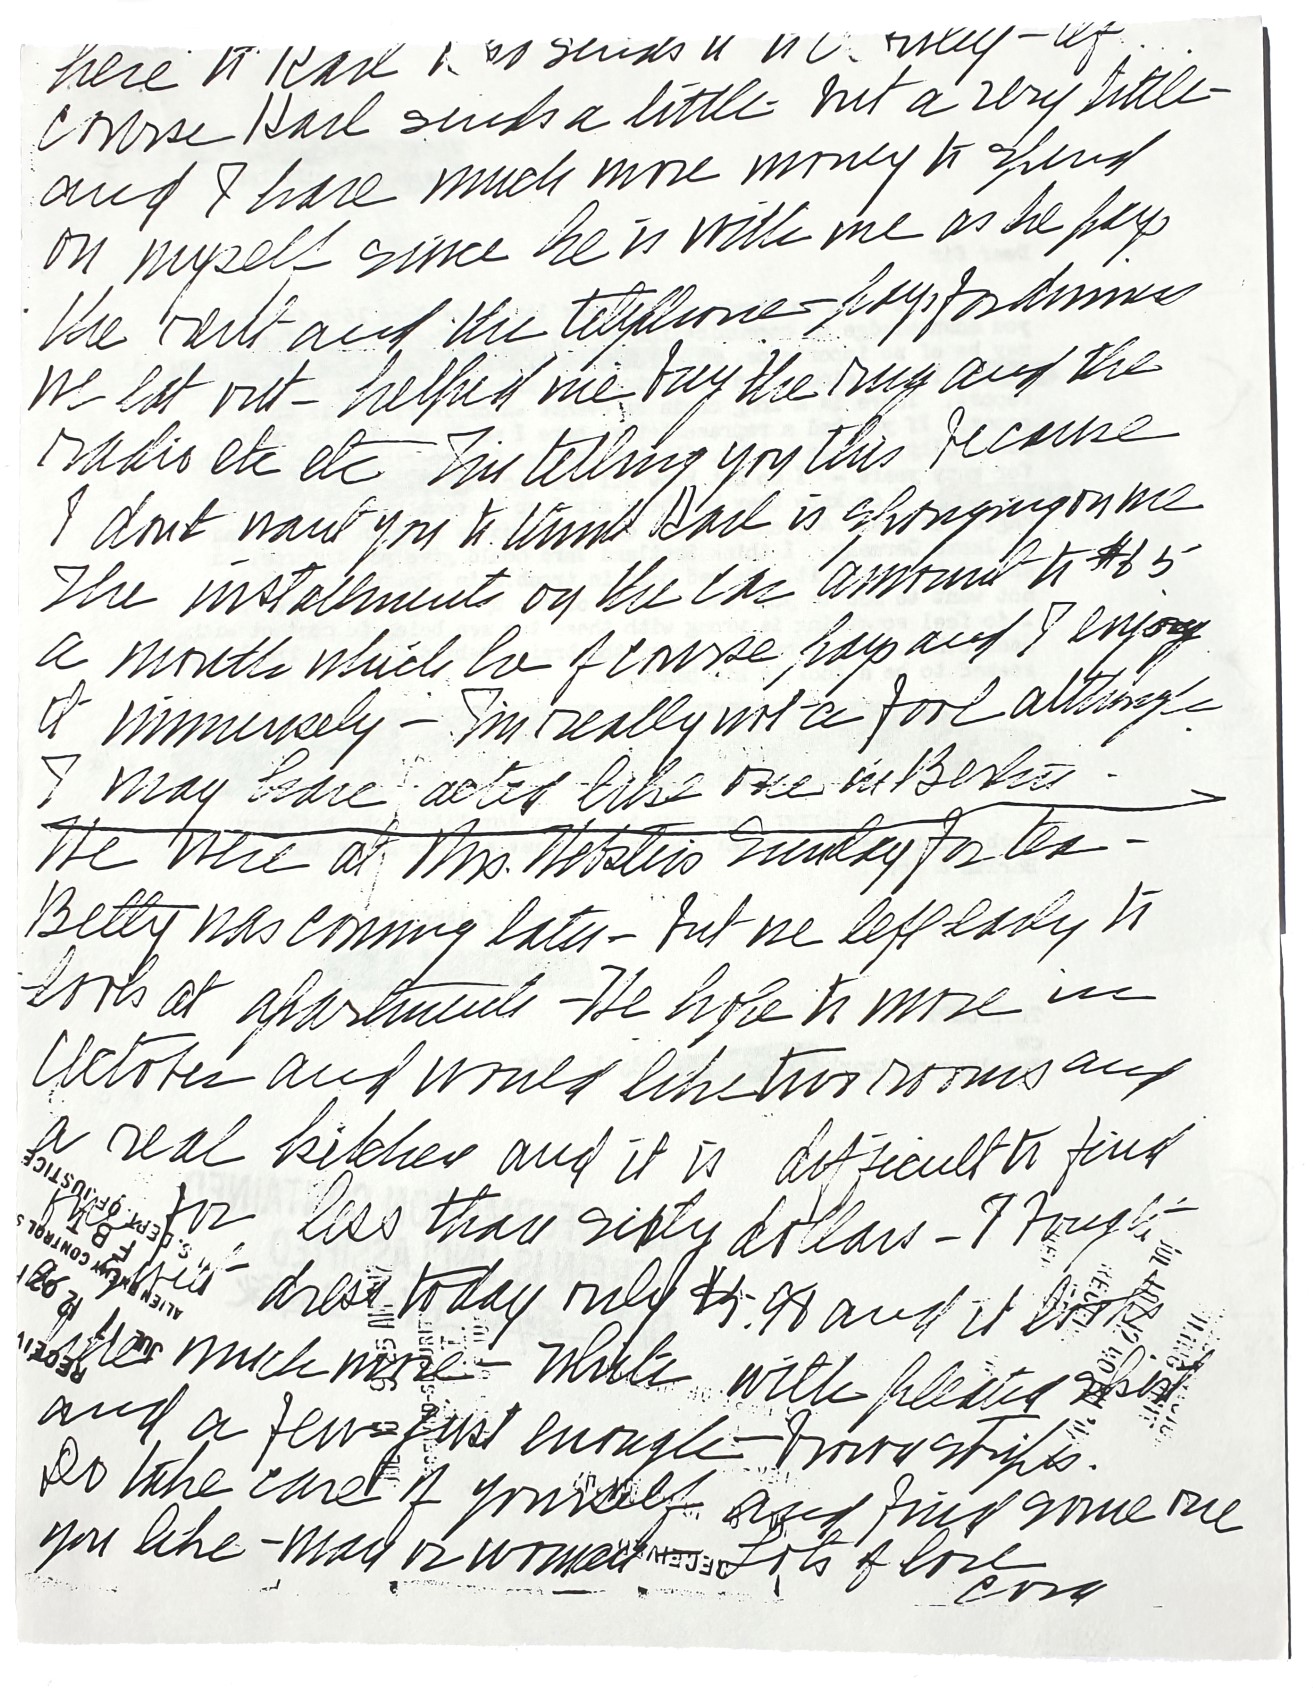 here to Karl so sends it to
course Karl sends a little but a very little -
and I have much more money to spend
on myself since he is with me as he pays
the rent and the telephone - pays for dinners
we eat out - helped me buy the rug and the
radio etc etc - I'm telling you this because
I dont want you to think Karl is sponging on me
The installments on the car amount to $65
a month which he of course pays and I enjoy
it immensely - I'm really not a fool although
I may have acted like one in Berlin.
We were at Mrs. Websters Sunday for tea -
Betty was coming later - but we left early to
look at apartments - We hope to move in
October and would like two rooms and
a real kitchen and it is difficult to find
one for less than sixty dollars - I bought
dress today only $5.98 and it looks
like much more - White with pleated skirt
and a few - just enough - brown stripes.
Do take care of yourself and find some one
you like - man or woman - Lots of love
Cora
RECEIVED
JUL 17
ALIEN ENEMY CONTROL
F B I
U.S. DEPT. OF JUSTICE
RECEIVED